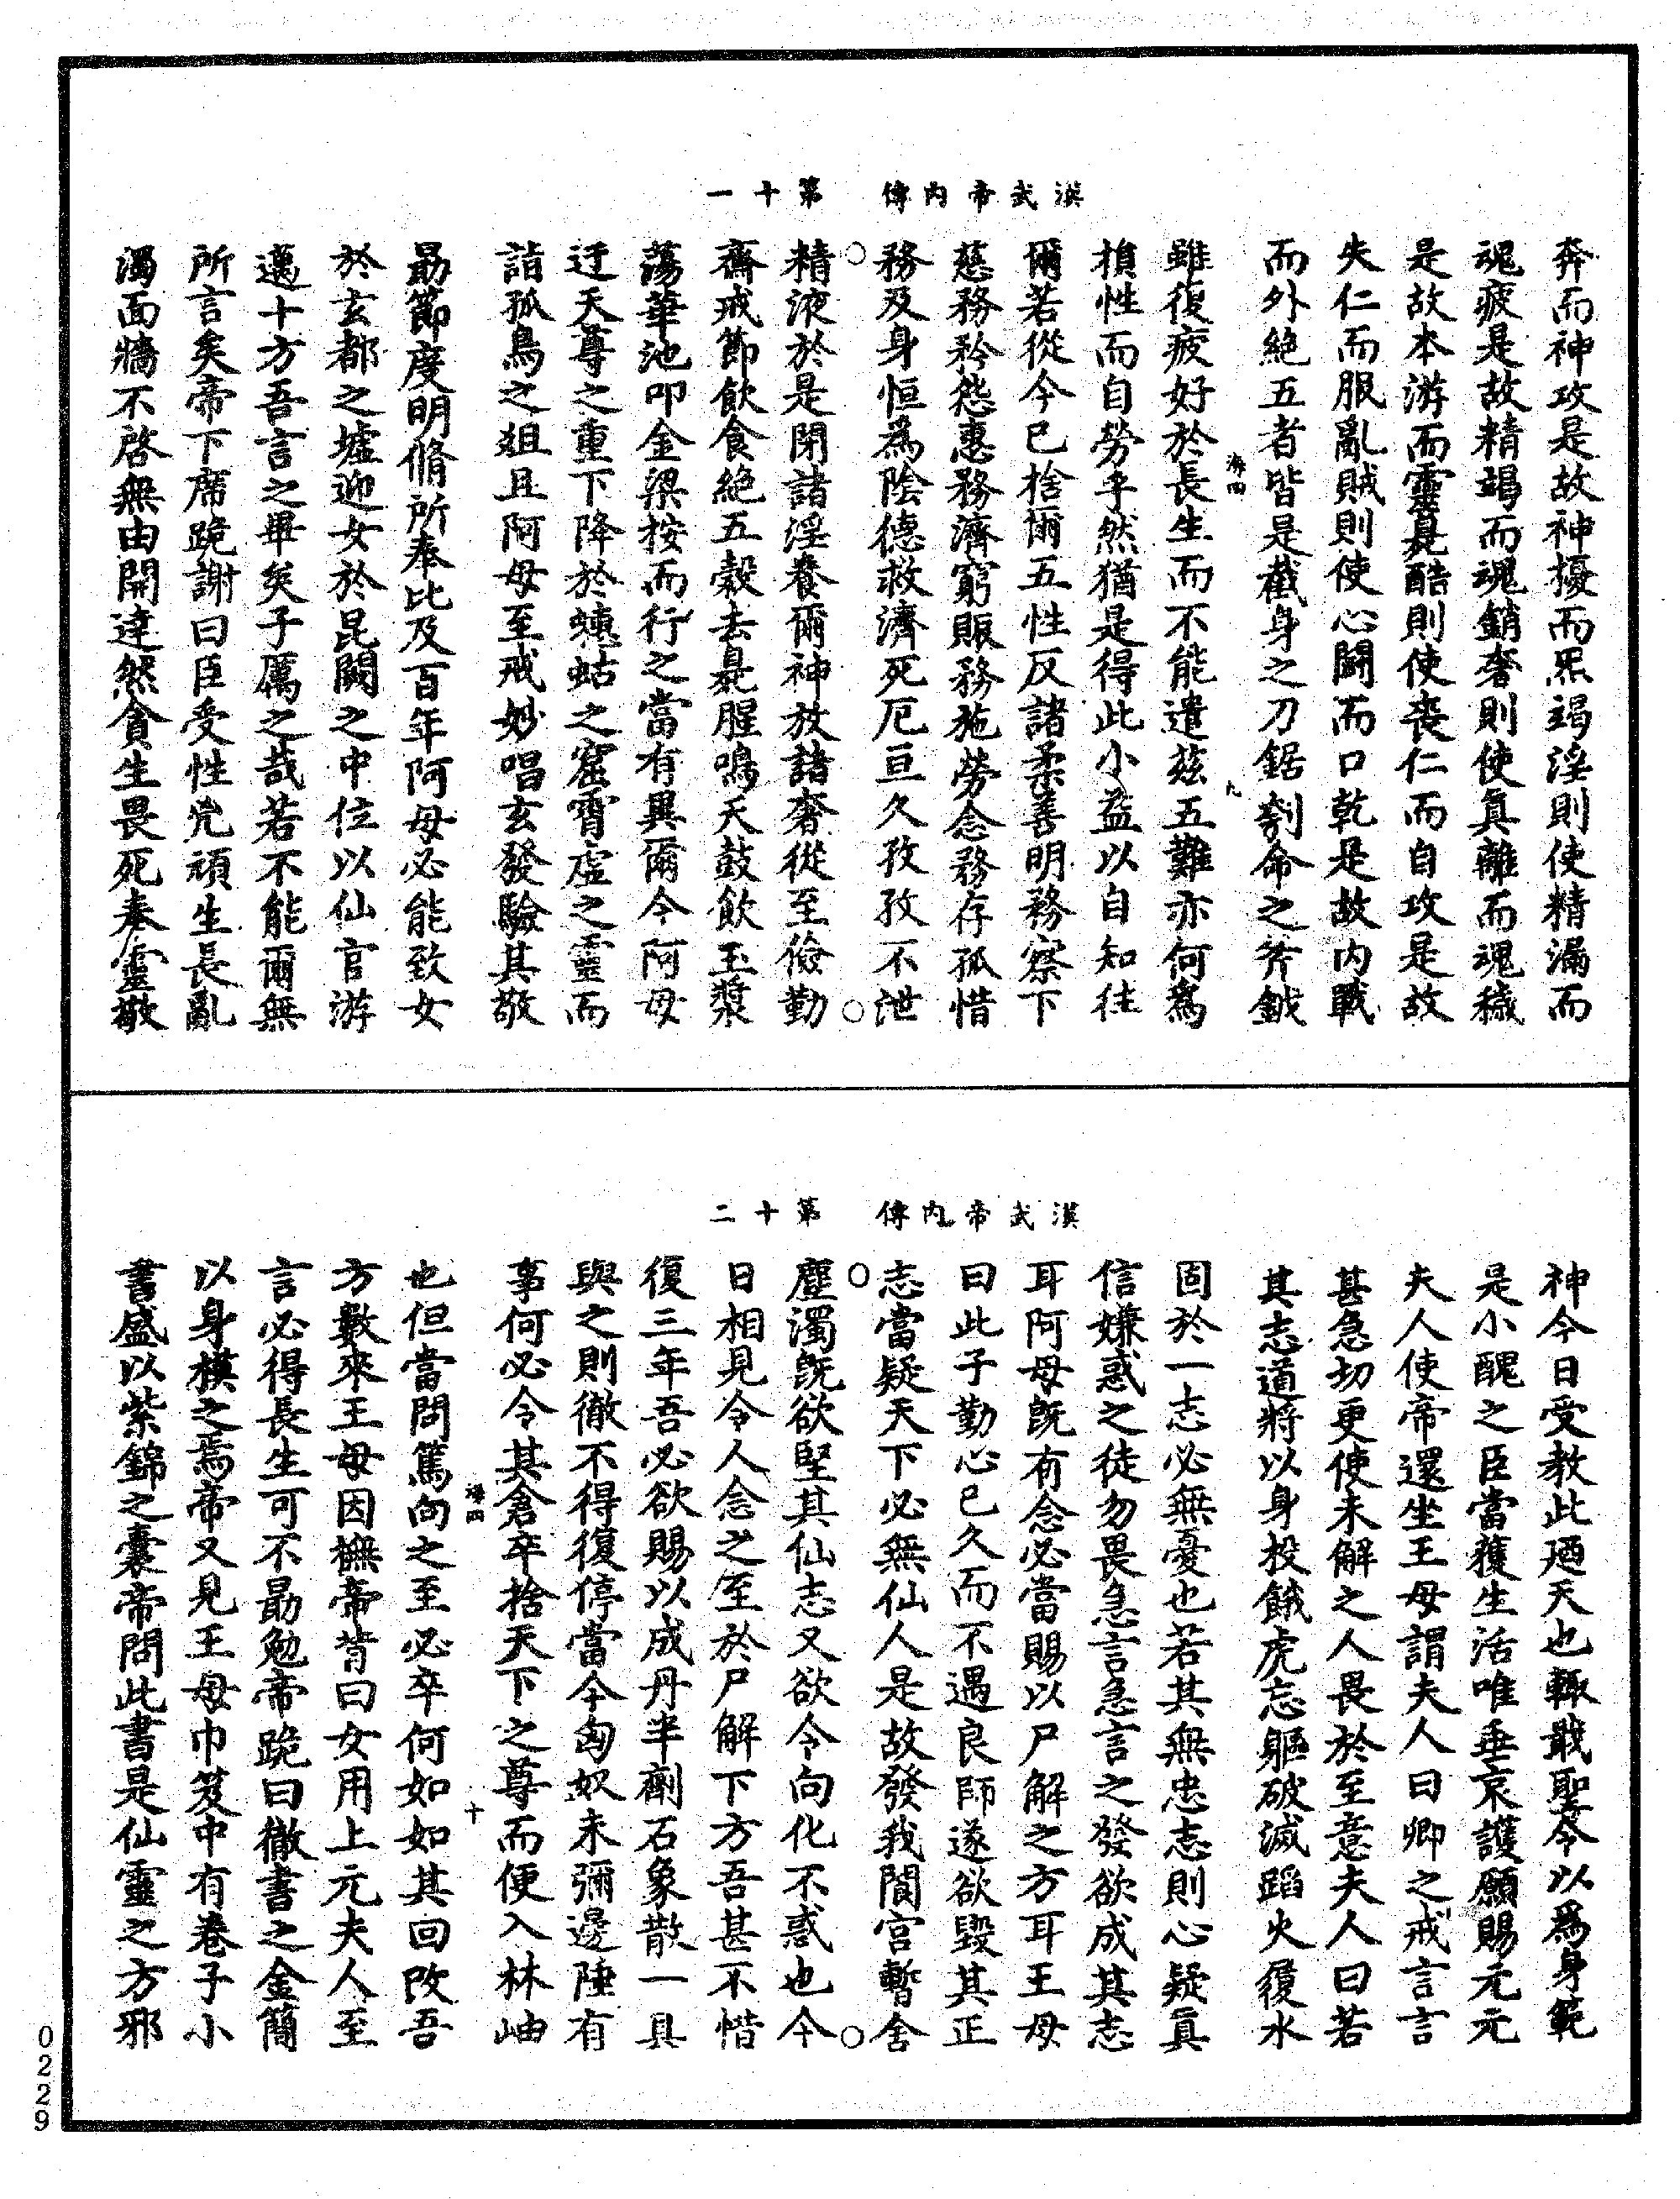 漢武帝內傳　第十一
奔而神攻是故神擾而炁竭淫則使精漏而
魂疲是故精竭而魂銷奢則使真離而魂穢
是故本游而靈臭酷則使喪仁而自攻是故
失仁而服亂賊則使心鬭而口乾是故內戰
而外絕五者皆是截身之刀鋸刳命之斧鉞
海四　九
雖復疲好於長生而不能遣茲五難亦何爲
損性而自勞乎然猶是得此小益以自知往
爾若從今已捨爾五性反諸柔善明務察下
慈務矜怨惠務濟窮賑務施勞念務存孤惜
務及身恒爲陰德救濟死厄亘久孜孜不泄
精液於是閉諸淫養爾神放諸奢從至儉勤
齋戒節飲食絕五穀去臭腥鳴天鼓飲玉漿
蕩華池叩金梁按而行之當有異爾今阿母
迂天尊之重下降於蟪蛄之窟霄虛之靈而
詣孤鳥之俎且阿母至戒妙唱玄發驗其敬
勗節度明脩所奉比及百年阿母必能致女
於玄都之墟迎女於昆闕之中位以仙官游
邁十方吾言之畢矣子厲之哉若不能爾無
所言矣帝下席跪謝曰臣受性兇頑生長亂
濁面牆不啓無由開達然貪生畏死奉靈敬
漢武帝內傳　第十二
神今日受教此廼天也輙戢聖令以爲身範
是小醜之臣當獲生活唯垂哀護願賜元元
夫人使帝還坐王母謂夫人曰卿之戒言言
甚急切更使未解之人畏於至意夫人曰若
其志道將以身投餓虎忘軀破滅蹈火履水
固於一志必無憂也若其無忠志則心疑真
信嫌惑之徒勿畏急言急言之發欲成其志
耳阿母旣有念必當賜以尸解之方耳王母
曰此子勤心已久而不遇良師遂欲毀其正
志當疑天下必無仙人是故發我閬宮暫舍
塵濁旣欲堅其仙志又欲令向化不惑也今
日相見令人念之至於尸解下方吾甚不惜
復三年吾必欲賜以成丹半劑石象散一具
與之則徹不得復停當今匈奴未彌邊陲有
事何必令其倉卒捨天下之尊而便入林岫
海四　十
也但當問篤向之至必卒何如如其回改吾
方數來王母因撫帝背曰女用上元夫人至
言必得長生可不勗勉帝跪曰徹書之金簡
以身模之焉帝又見王母巾笈中有卷子小
書盛以紫錦之囊帝問此書是仙靈之方邪
0229